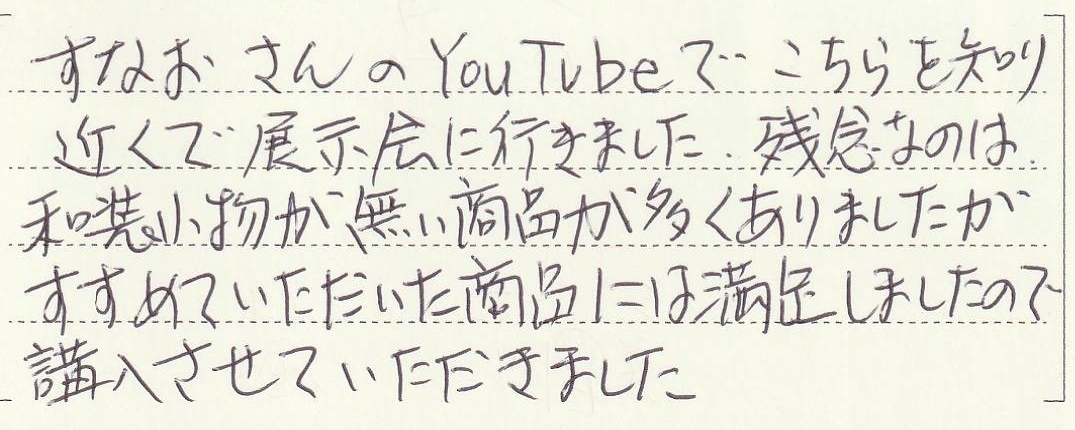 すなおさんのYouTubeでこちらを知り
近くで展示会に行きました。残念なのは
和装小物が無い商品が多くありましたが
すすめていただいた商品には満足しましたので
講入させていただきました